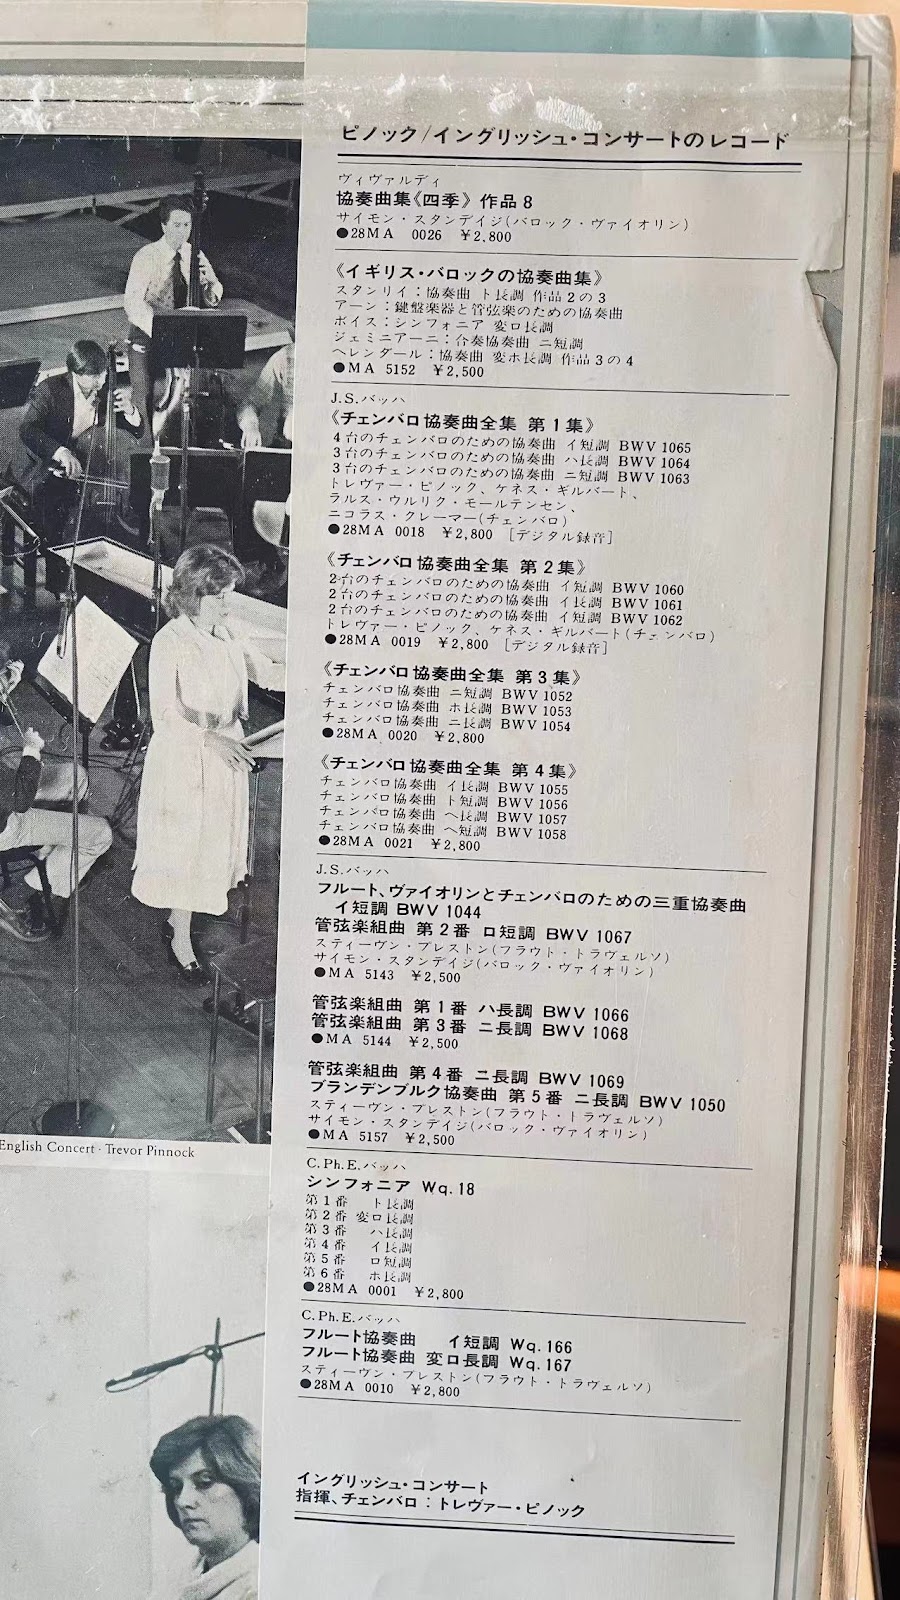 ピノック/イングリッシュ・コンサートのレコード
ヴィヴァルディ
協奏曲集《四季》 作品8
サイモン・スタンデイジ(バロック・ヴァイオリン)
●28MA 0026 ¥2,800
《イギリス・バロックの協奏曲集》
スタンリイ:協奏曲 ト長調 作品2の3
アーン:鍵盤楽器と管弦楽のための協奏曲
ボイス:シンフォニア 変ロ長調
ジェミニアーニ:合奏協奏曲 ニ短調
ヘレンダール:協奏曲 変ホ長調 作品3の4
●MA 5152 ¥2,500
J.S.バッハ
《チェンバロ協奏曲全集 第1集》
4台のチェンバロのための協奏曲 イ短調 BWV 1065
3台のチェンバロのための協奏曲 ハ長調 BWV 1064
3台のチェンバロのための協奏曲 ニ短調 BWV 1063
トレヴァー・ピノック、ケネス・ギルバート、
ラルス・ウルリク・モールテンセン、
ニコラス・クレーマー(チェンバロ)
●28MA 0018 ¥2,800 [デジタル録音]
《チェンバロ協奏曲全集 第2集》
2台のチェンバロのための協奏曲 イ短調 BWV 1060
2台のチェンバロのための協奏曲 イ長調 BWV 1061
2台のチェンバロのための協奏曲 イ短調 BWV 1062
トレヴァー・ピノック、ケネス・ギルバート(チェンバロ)
●28MA 0019 ¥2,800 [デジタル録音]
《チェンバロ協奏曲全集 第3集》
チェンバロ協奏曲 ニ短調 BWV 1052
チェンバロ協奏曲 ホ長調 BWV 1053
チェンバロ協奏曲 ニ長調 BWV 1054
●28MA 0020 ¥2,800
《チェンバロ協奏曲全集 第4集》
チェンバロ協奏曲 イ長調 BWV 1055
チェンバロ協奏曲 ト短調 BWV 1056
チェンバロ協奏曲 ヘ長調 BWV 1057
チェンバロ協奏曲 ヘ短調 BWV 1058
●28MA 0021 ¥2,800
J.S.バッハ
フルート、ヴァイオリンとチェンバロのための三重協奏曲
イ短調 BWV 1044
管弦楽組曲 第2番 ロ短調 BWV 1067
スティーヴン・プレストン(フラウト・トラヴェルソ)
サイモン・スタンデイジ(バロック・ヴァイオリン)
●MA 5143 ¥2,500
管弦楽組曲 第1番 ハ長調 BWV 1066
管弦楽組曲 第3番 ニ長調 BWV 1068
●MA 5144 ¥2,500
管弦楽組曲 第4番 ニ長調 BWV 1069
ブランデンブルク協奏曲 第5番 ニ長調 BWV 1050
スティーヴン・プレストン(フラウト・トラヴェルソ)
サイモン・スタンデイジ(バロック・ヴァイオリン)
●MA 5157 ¥2,500
English Concert · Trevor Pinnock
C.Ph.E.バッハ
シンフォニア Wq.18
第1番 ト長調
第2番 変ロ長調
第3番 ハ長調
第4番 イ長調
第5番 ロ短調
第6番 ホ長調
●28MA 0001 ¥2,800
C.Ph.E.バッハ
フルート協奏曲 イ短調 Wq.166
フルート協奏曲 変ロ長調 Wq.167
スティーヴン・プレストン(フラウト・トラヴェルソ)
●28MA 0010 ¥2,800
イングリッシュ・コンサート
指揮、チェンバロ:トレヴァー・ピノック